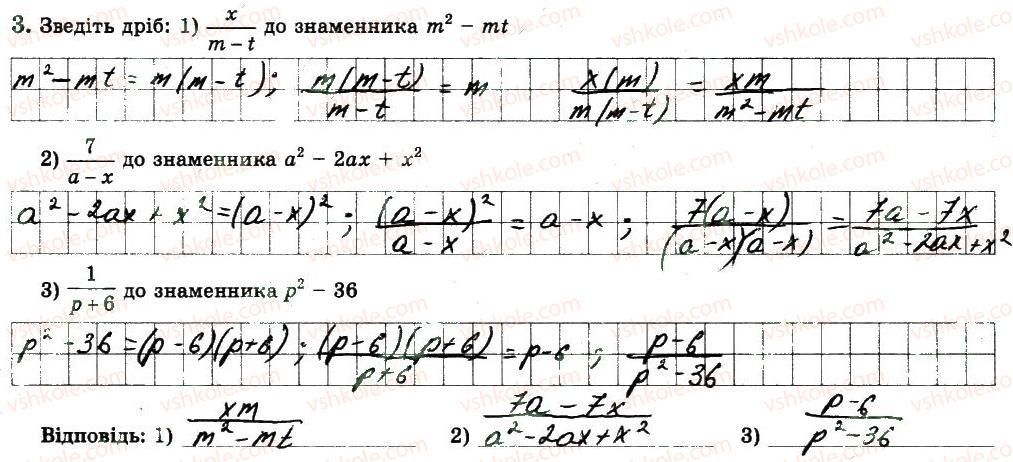 3. Зведіть дріб: 1) x/(m − t) до знаменника m² − mt
m² − mt = m(m − t); m(m − t)/(m − t) = m x(m)/m(m − t) = xm/(m² − mt)
2) 7/(a − x) до знаменника a² − 2ax + x²
a² − 2ax + x² = (a − x)²; (a − x)²/(a − x) = a − x; 7(a − x)/(a − x)(a − x) = (7a − 7x)/(a² − 2ax + x²)
3) 1/(p + 6) до знаменника p² − 36
p² − 36 = (p − 6)(p + 6); (p − 6)(p + 6)/(p + 6) = p − 6; (p − 6)/(p² − 36)
Відповідь: 1) xm/(m² − mt) 2) (7a − 7x)/(a² − 2ax + x²) 3) (p − 6)/(p² − 36)